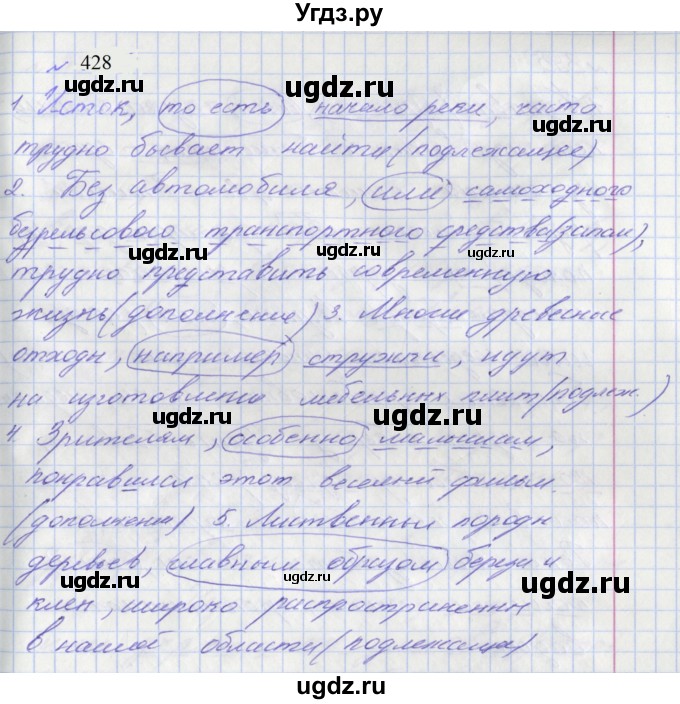 Угдз.ру
428
ugdz.ru
1. Исток, то есть начало реки, часто
ugdz.ru
трудно бывает найти (подлежащее)
ugdz.ru
2. Без автомобиля, или самоходного
безрельсового транспортного средства
ugdz.ru ugdz.ru
трудно представить современную
жизнь (дополнение) 3. Многие древесные
ugdz.ru
отходы, например стружки, идут
ugdz.ru
на изготовление мебельных плит (подлеж.)
ugdz.ru ugdz.ru
4. Зрителям, особенно малышам,
понравился этот веселый фильм.
ugdz.ru
(дополнение) 5. Лиственные породы
ugdz.ru
деревьев, главным образом береза и
ugdz.ru
клен, широко распространены
ugdz.ru
в нашей области (подлежащее)
ugdz.ru ugdz.ru
ugdz.ru